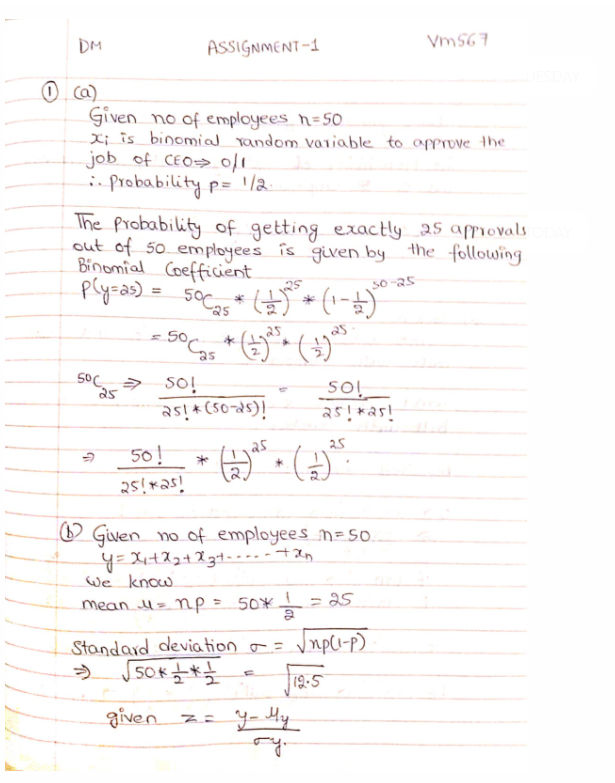 DM ASSIGNMENT-1 Vm567
① (a)
Given no of employees n=50
xi is binomial random variable to approve the
job of CEO⇒ 0/1
∴ Probability p= 1/2.
The Probability of getting exactly 25 approvals
out of 50 employees is given by the following
Binomial Coefficient
P(y=25) = 50C25 * (1/2)^25 * (1-1/2)^50-25
= 50C25 * (1/2)^25 * (1/2)^25.
50C25 ⇒ 50!/25!*(50-25)! = 50!/25!*25!
⇒ 50!/25!*25! * (1/2)^25 * (1/2)^25.
(b) Given no of employees n=50
y= x1+x2+x3+-----+xn
we know
mean μ= np = 50* 1/2 = 25
Standard deviation σ = √np(1-p)
⇒ √50*1/2*1/2 = √12.5
given z = y-μy/σy.